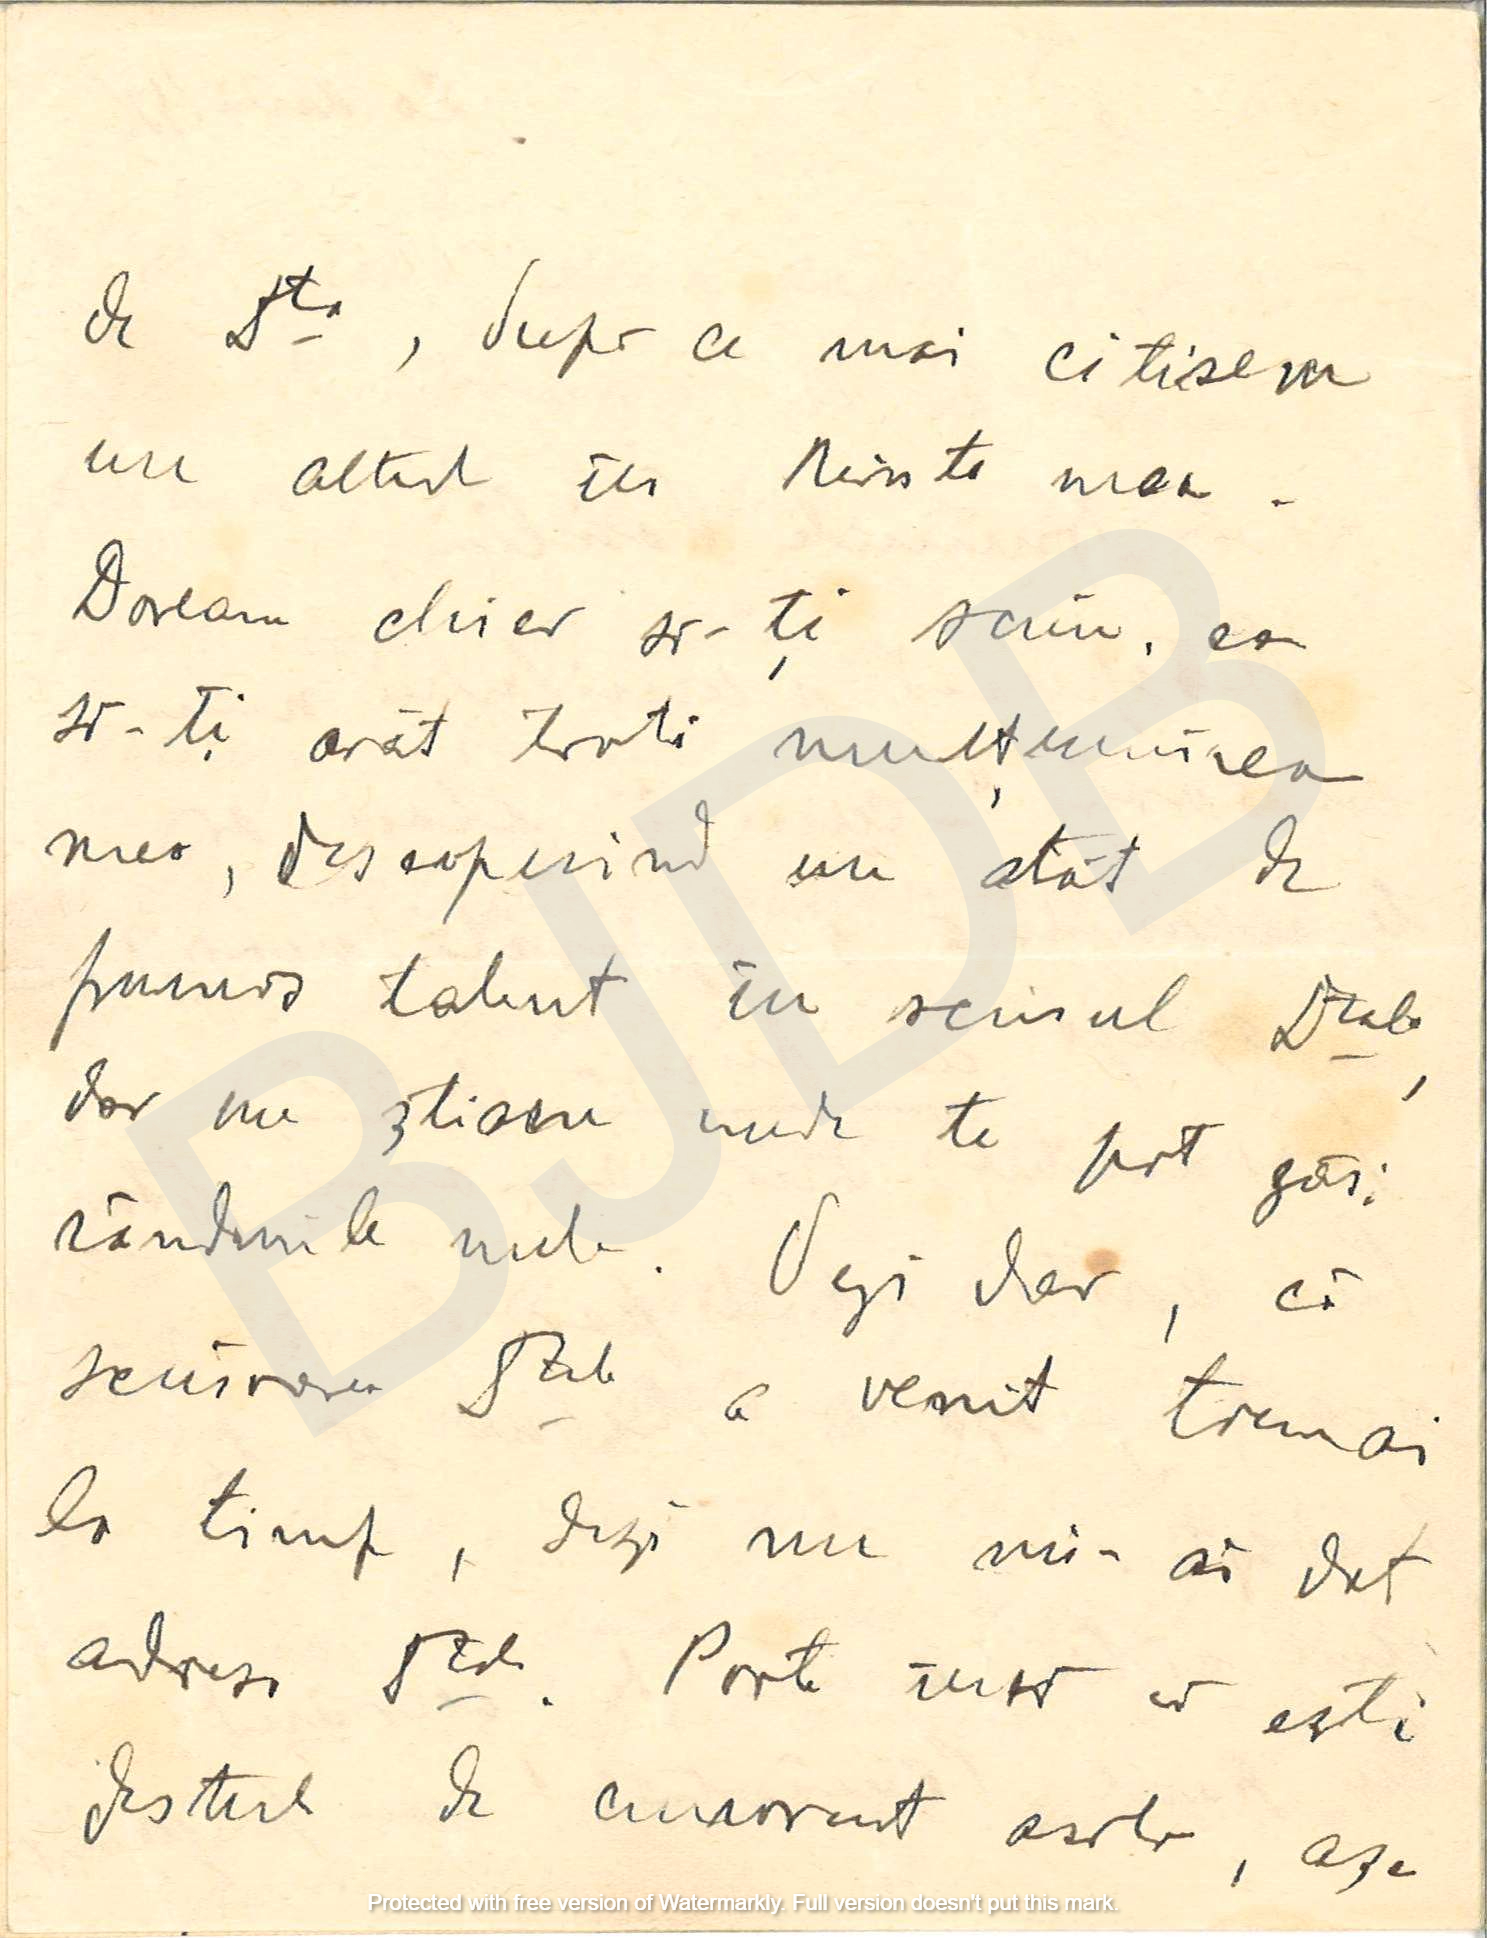 de Dta, după ce mai citisem
un altul în Revista mea.
Doream chiar să-ți scriu, ca
să-ți arăt toată mulțumirea
mea, descoperind un atât de
frumos talent în scrisul Dtale,
dar nu știam unde te pot găsi
rândurile mele. Vezi dar, că
scrisoarea Dtale a venit tocmai
la timp, deși nu mi-ai dat
adresa Dtale. Poate însă că ești
destul de cunoscut acolo, așa
BJDB
Protected with free version of Watermarkly. Full version doesn't put this mark.